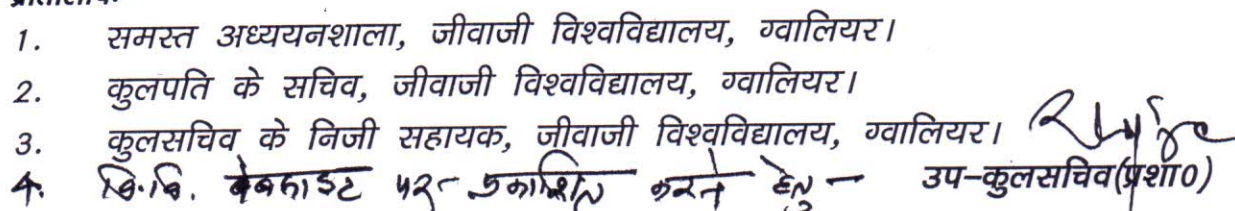 प्रतिलिपि
1. समस्त अध्ययनशाला, जीवाजी विश्वविद्यालय, ग्वालियर।
2. कुलपति के सचिव, जीवाजी विश्वविद्यालय, ग्वालियर।
3. कुलसचिव के निजी सहायक, जीवाजी विश्वविद्यालय, ग्वालियर।
4. वि.वि. वेबसाइट पर प्रकाशित करने हेतु -
उप-कुलसचिव(प्रशा0)